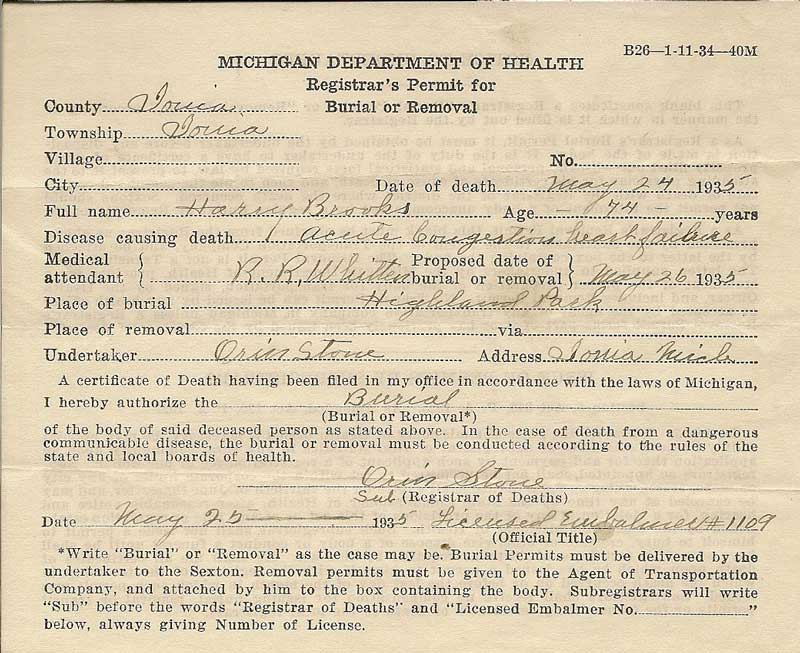 B26—1-11-34—40M
MICHIGAN DEPARTMENT OF HEALTH
Registrar's Permit for
County Ionia Burial or Removal
Township Ionia
Village No.
City Date of death May 24 1935
Full name Harry Brooks Age - 74 - years
Disease causing death acute Congestion heart failure
Medical attendant } R. R. Whitten Proposed date of burial or removal } May 26 1935
Place of burial Highland Park
Place of removal via
Undertaker Orin Stone Address Ionia Mich
A certificate of Death having been filed in my office in accordance with the laws of Michigan,
I hereby authorize the Burial
(Burial or Removal*)
of the body of said deceased person as stated above. In the case of death from a dangerous
communicable disease, the burial or removal must be conducted according to the rules of the
state and local boards of health.
Orin Stone
Sub (Registrar of Deaths)
Date May 25 1935 Licensed Embalmer # 1109
(Official Title)
*Write "Burial" or "Removal" as the case may be. Burial Permits must be delivered by the
undertaker to the Sexton. Removal permits must be given to the Agent of Transportation
Company, and attached by him to the box containing the body. Subregistrars will write
"Sub" before the words "Registrar of Deaths" and "Licensed Embalmer No. "
below, always giving Number of License.